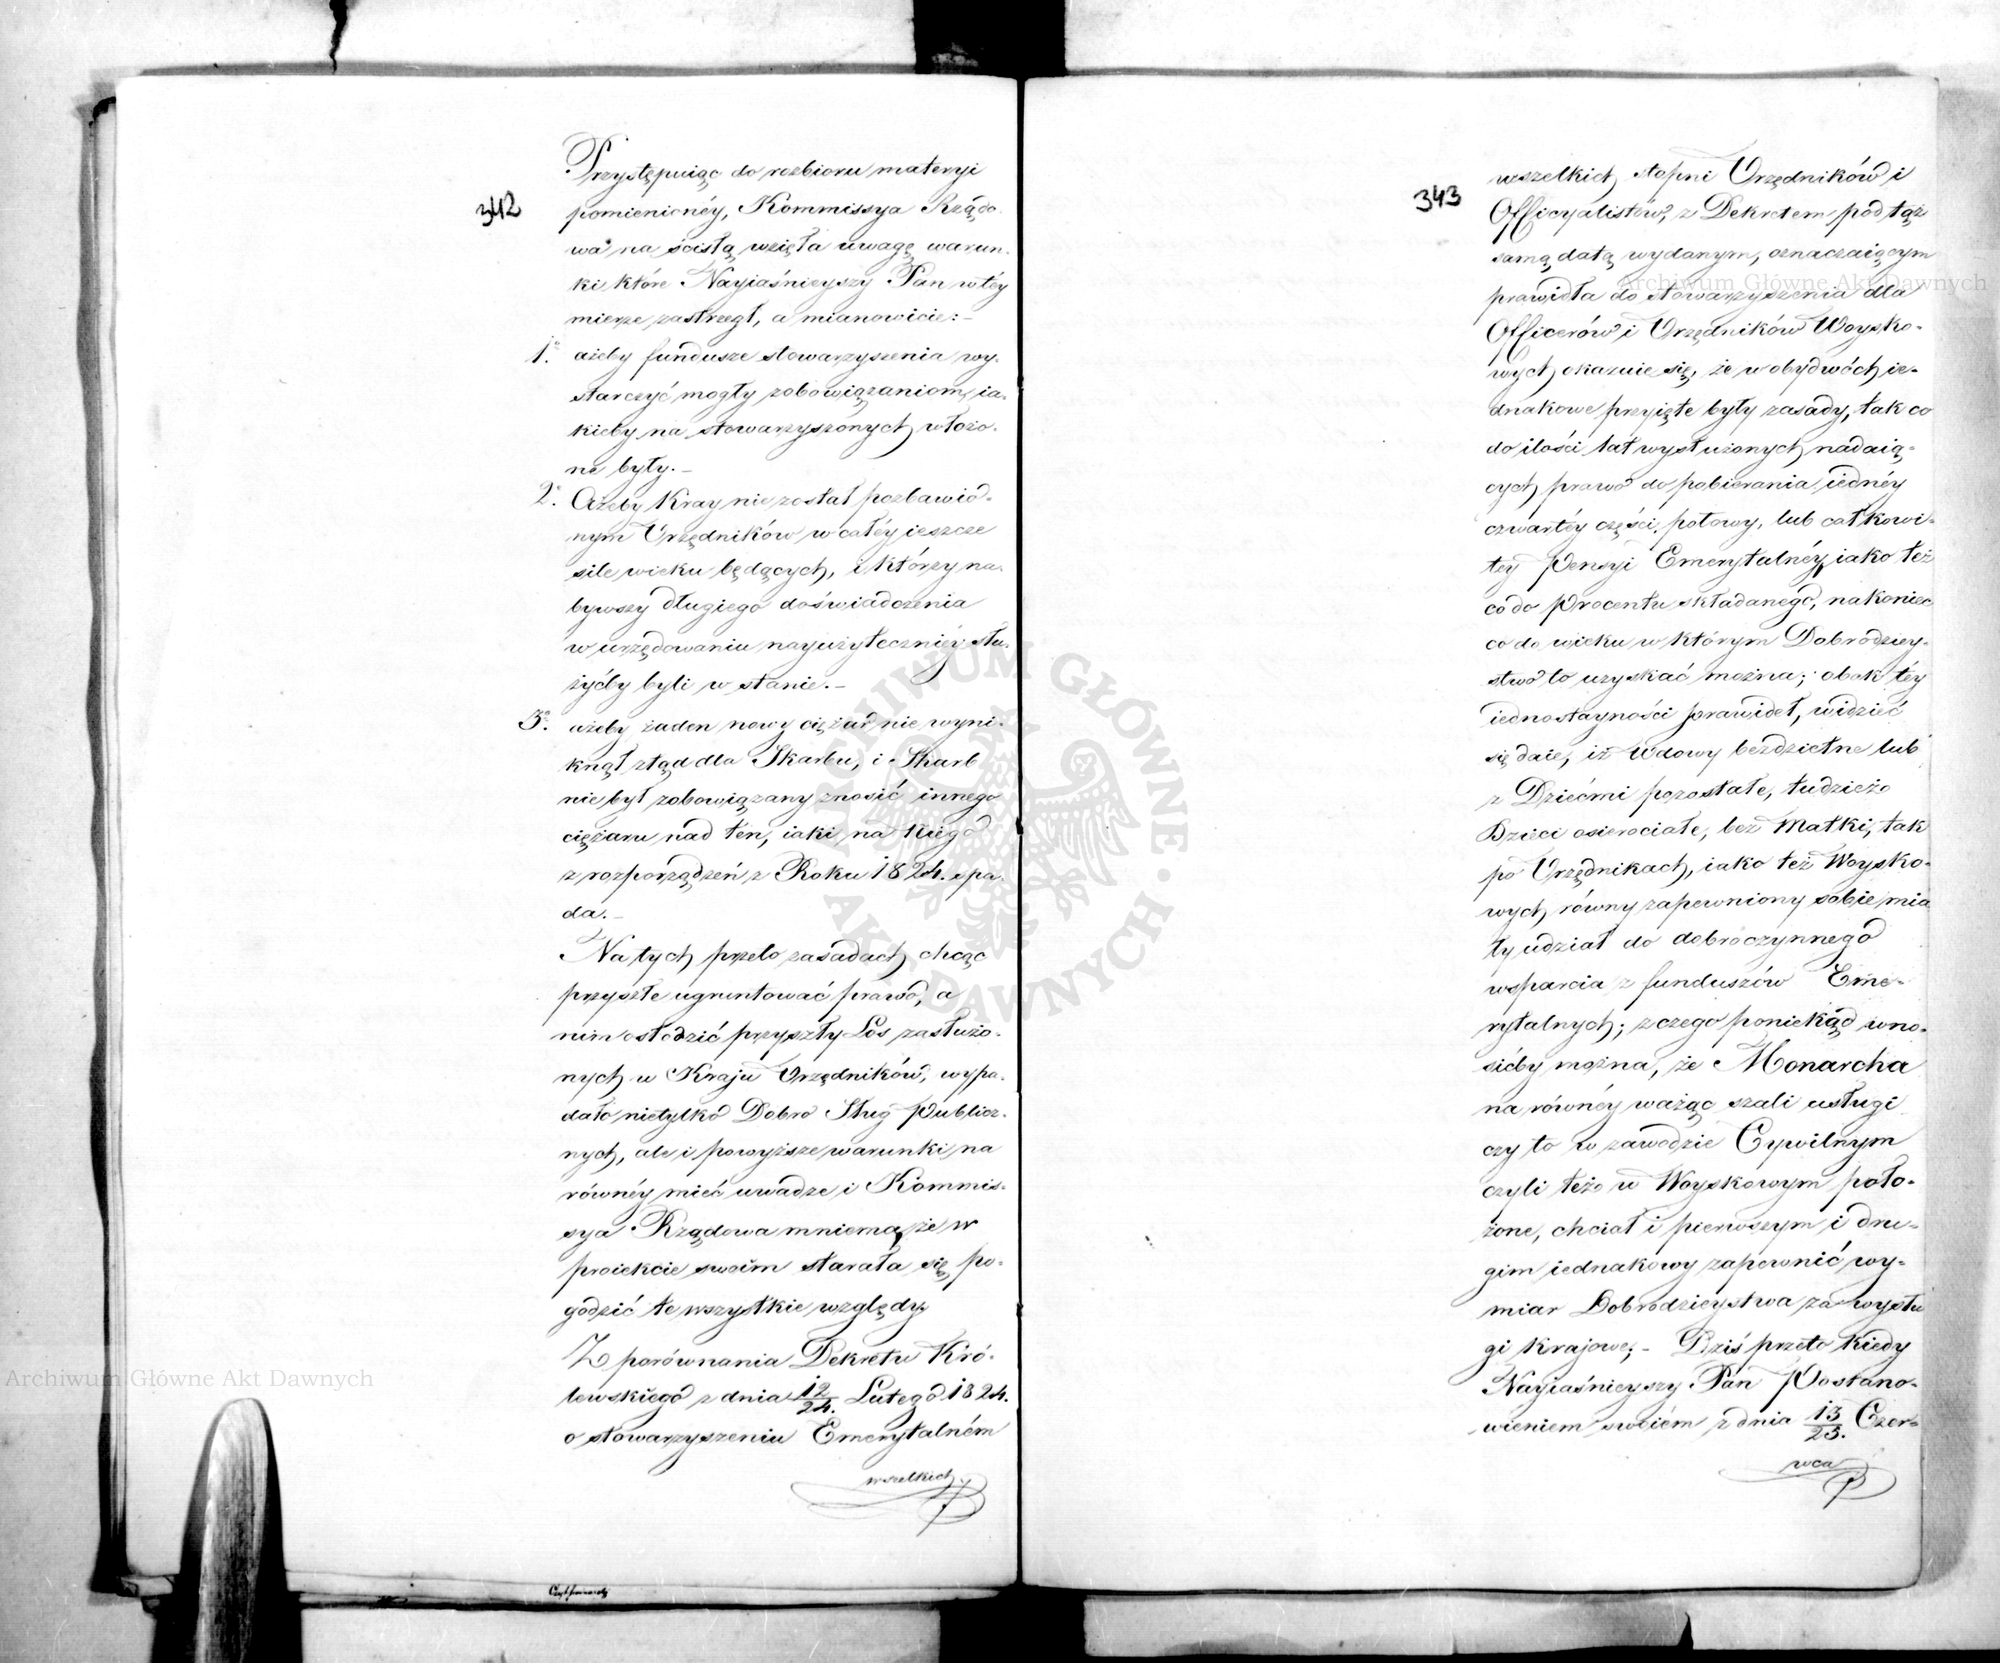 342
Przystępuiąc do rozbioru materyi
pomienionéy, Kommissya Rządo-
wa na ścisłą wzięła uwagę warun-
ki które Nayiaśnieyszy Pan w téy
mierze zastrzegł, a mianowicie:-
1o. ażeby fundusze stowarzyszenia wy-
starczyć mogły zobowiązaniom, ia-
kieby na stowarzyszonych włożo-
ne były.-
2o. Ażeby Kray nie został pozbawio-
nym Urzędników w całéy ieszcze
sile wieku będących, i którzy na-
bywszy długiego doświadczenia
w urzędowaniu nayużyteczniéy słu-
żyćby byli w stanie.-
3o. ażeby żaden nowy ciężar nie wyni-
knął ztąd dla Skarbu, i Skarb
nie był zobowiązany znosić innego
ciężaru nad tén, iaki na niego
z rozporządzeń z Roku 1824. spa-
da.-
Na tych przeto zasadach chcąc
przyszłe ugruntować prawo, a
nim osłodzić przyszły Los zasłużo-
nych w Kraju Urzędników, wypa-
dało nietylko Dobro Sług Publicz-
nych, ale i powyższe warunki na
równéy mieć uwadze i Kommis-
sya Rządowa mniema, że w
proiekcie swoim starała się po-
godzić te wszystkie względy.
Z porównania Dekretu Kró-
lewskiego z dnia 12/24. Lutego 1824.
o stowarzyszeniu Emerytalném
wszelkich
343
wszelkich stopni Urzędników i
Officyalistów, z Dekretem pod tąż
samą datą wydanym, oznaczaiącym
prawidła do stowarzyszenia dla
Officerów i Urzędników Woysko-
wych okazuie się, że w obydwóch ie-
dnakowe przyięte były zasady, tak co
do ilości lat wysłużonych nadaią-
cych prawo do pobierania iednéy
czwartéy części, połowy, lub całkowi-
tey Pensyi Emerytalnéy, iako też
co do Procentu składanego, nakoniec
co do wieku w którym Dobrodziey-
stwo to uzyskać można; obok téy
iednostayności prawideł, widzieć
się daie, iż Wdowy bezdzietne lub
z Dziećmi pozostałe, tudzież
Dzieci osierociałe, bez Matki, tak
po Urzędnikach, iako też Woysko-
wych, równy zapewniony sobie mia-
ły udział do dobroczynnego
wsparcia z funduszów Eme-
rytalnych; z czego poniekąd wno-
sićby można, że Monarcha
na równéy ważąc szali usługi
czy to w zawodzie Cywilnym
czyli też w Woyskowym poło-
żone, chciał i pierwszym i dru-
gim iednakowy zapewnić wy-
miar Dobrodzieystwa za wysłu
gi krajowe;- Dziś przeto kiedy
Nayiaśnieyszy Pan Postano-
wieniem swoiém z dnia 13/25. Czer-
wca
Archiwum Główne Akt Dawnych
Archiwum Główne Akt Dawnych
ARCHIWUM GŁÓWNE · AKT DAWNYCH ·